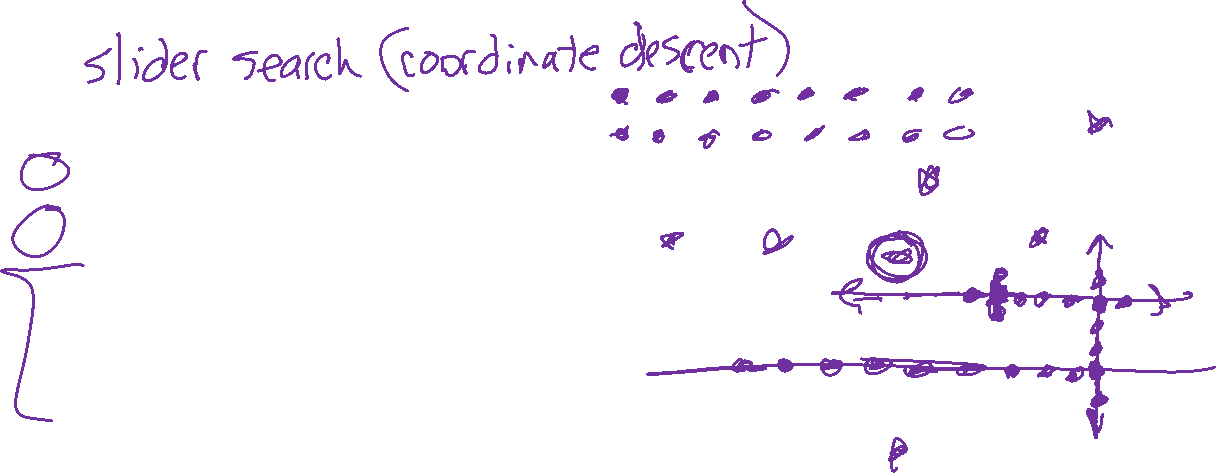 slider search (coordinate descent)